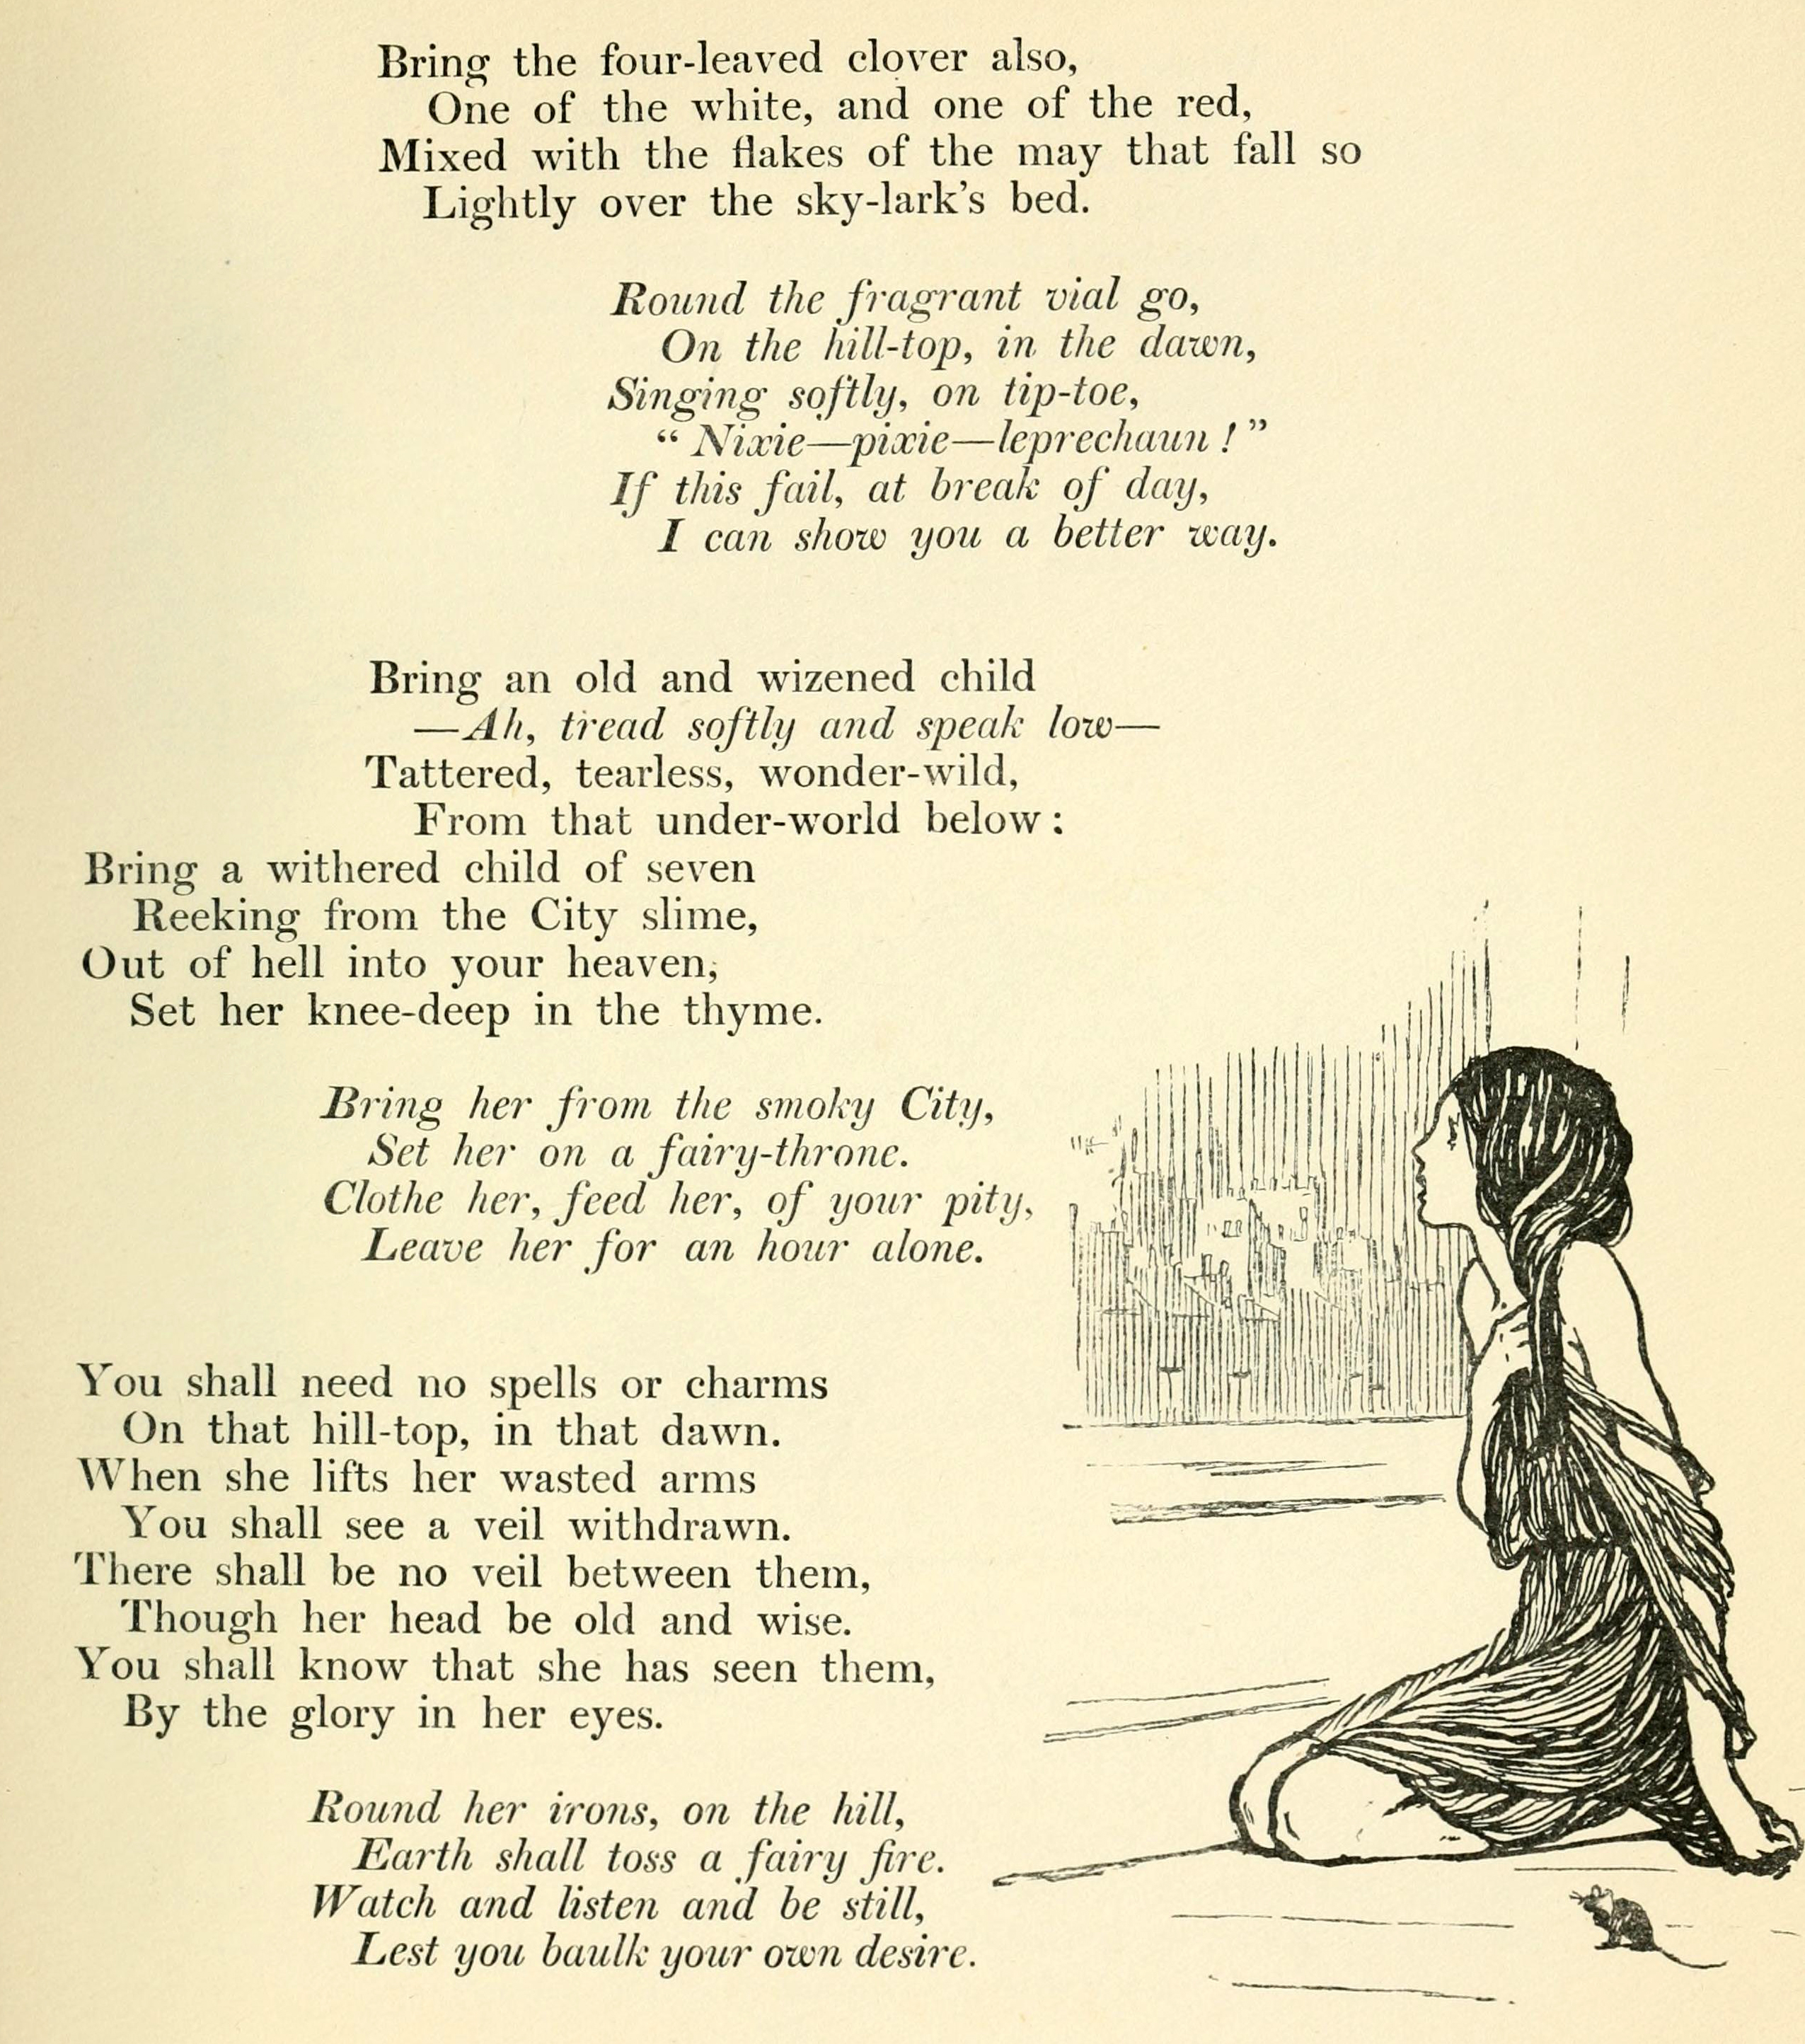 Bring the four-leaved clover also,
One of the white, and one of the red,
Mixed with the flakes of the may that fall so
Lightly over the sky-lark's bed.
Round the fragrant vial go,
On the hill-top, in the dawn,
Singing softly, on tip-toe,
“ Nixie—pixie—leprechaun ! ”
If this fail, at break of day,
I can show you a better way.
Bring an old and wizened child
—Ah, tread softly and speak low—
Tattered, tearless, wonder-wild,
From that under-world below :
Bring a withered child of seven
Reeking from the City slime,
Out of hell into your heaven,
Set her knee-deep in the thyme.
Bring her from the smoky City,
Set her on a fairy-throne.
Clothe her, feed her, of your pity,
Leave her for an hour alone.
You shall need no spells or charms
On that hill-top, in that dawn.
When she lifts her wasted arms
You shall see a veil withdrawn.
There shall be no veil between them,
Though her head be old and wise.
You shall know that she has seen them,
By the glory in her eyes.
Round her irons, on the hill,
Earth shall toss a fairy fire.
Watch and listen and be still,
Lest you baulk your own desire.